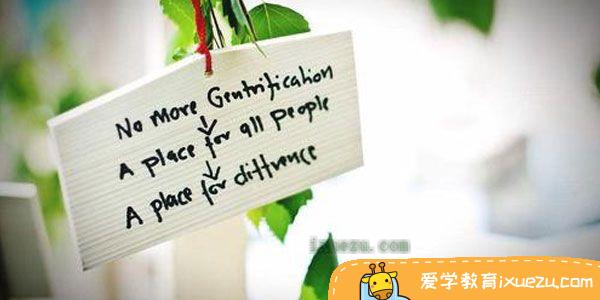 No More Gentrification
A place for all people
A place for diffrence
ixuezu.com
爱学教育ixuezu.com